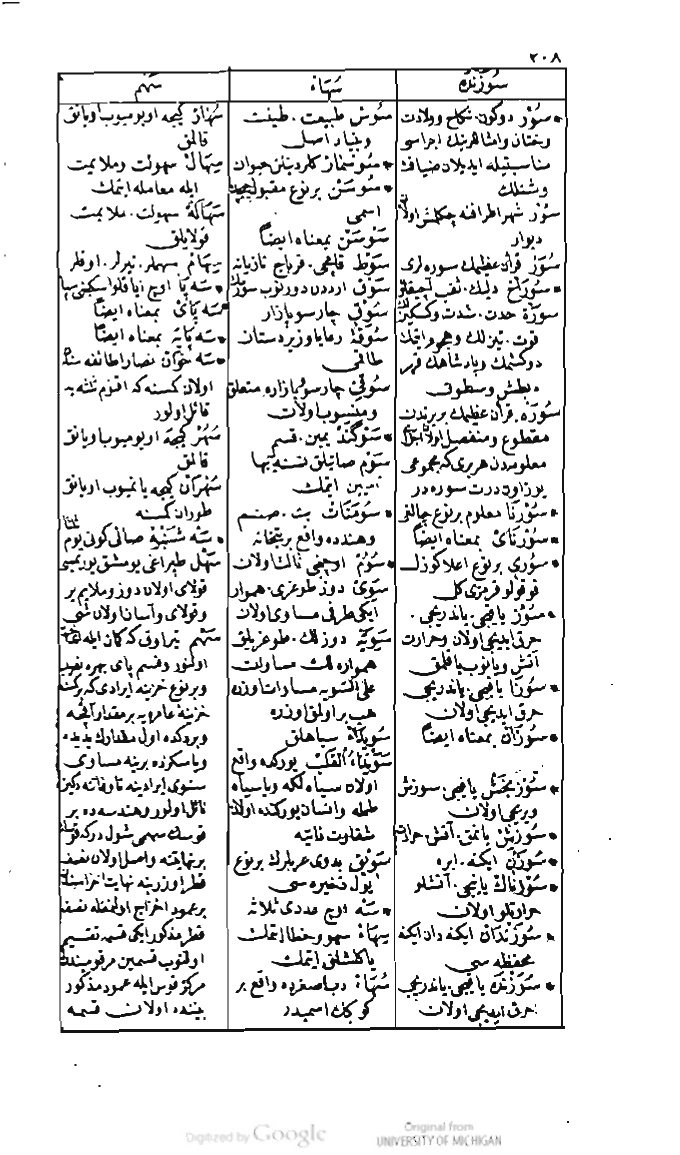 ٢٠٨
سوزنده
سهاه
سهم
• سور دوكون. نكاح وولادت
وختان وامثاللرينك اجراسى
مناسبتيله ايديلان ضيافت
وشنلك
سور شهر اطرافنه چكلمش اولان
ديوار
سور قرآن عظيمك سوره لرى
• سوراخ دليك. ثقب
سورة حدت. شدت
قوت. تيزلك وهجوم ايتمك
دوكشمك وپادشاهك قهر
وبطش وسطوتى
سوره قرآن عظيمك بربرندن
مقطوع ومنفصل اولان اجزاى
معلومه دن هر برى كه مجموعى
يوز اون درت سوره در
• سورنا معلوم بر نوع چالغى
• سورناى بمعناه ايضاً
• سورى بر نوع اعلا كوزل
قوقولو قرمزى كل
• سوز ياقيجى. ياندريجى.
حرق ايديجى اولان وحرارت
آتش ويانوب ياقلمق
• سوزا ياقيجى. ياندريجى
حرق ايديجى اولان
• سوزان بمعناه ايضاً
• سوز بخش ياقيجى. سوزش
ويريجى اولان
• سوزش يانمق. آتش. حرارت
• سوزن ايكنه. ابره
• سوزناك ياقيجى. آتشلو
حرارتلو اولان
• سوزندان ايكنه دان ايكنه
محفظه سى
• سوزنده ياقيجى. ياندريجى
حرق ايديجى اولان
سوس طبيعت. طينت
وبنياد اصل
• سوسمار كلر دينلن حيوان
• سوسن بر نوع مقبول چيچك
اسمى
سوسن بمعناه ايضاً
سوط قامچى. قرباج تازيانه
سوق اردندن دورتوب سورمك
سوق چارسو پازار
سوقة رعايا وزيردستان
طاقمى
سوقى چارسو پازاره متعلق
ومنسوب اولان
• سوكند يمين. قسم
سوم صاتيلق نسنه يه بها
تعيين ايتمك
• سومنات بت. صنم
وهندده واقع بر بتخانه
• سوم اوچنجى ثالث اولان
سوى دوز طوغرى. هموار
ايكى طرفى مساوى اولان
سويه دوزلك. طوغريلق
هموارلك مساوات
على السويه مساوات اوزره
هب براولق اوزره
سويداء سياهلق
سويداء القلب يوركده واقع
اولان سياه لكه وياسياه
طمله وانسان يوركنده اولان
شقاوت ذاتيه
سويق بدوى عربلرك بر نوع
يول ذخيره سى
• سه اوچ عددى ثلاثه
سهاء سهو وخطا ايتمك
ياكلشلق ايتمك
سهاه دب اصغرده واقع بر
كوكبك اسميدر
سهاد كيجه اويوميوب اويانق
قالمق
سهال سهولت وملايمت
ايله معامله ايتمك
سهالة سهولت. ملايمت
قولايلق
سهام سهملر. تيرلر. اوقلر
• سه پا اوچ اياقلو اسكمنى سيپا
• سه پاى بمعناه ايضاً
• سه پايه بمعناه ايضاً
• سه خوان نصارا طائفه سنه
اولان كمسنه كه اقنوم ثلثه يه
قائل اولور
سهر كيجه اويوميوب اويانق
قالمق
سهران كيجه ياتميوب اويانق
طوران كسنه
• سه شنبه صالى كونى يوم
سهل طپراغى يومشق يور
قولاى اولان دوز وملايم ير
وقولاى وآسان اولان شى
سهم تير اوق كه كمان ايله
اولنور وقسم پاى بهره نصيب
وبر نوع خزينه ايرادى كه
خزينه عامره يه بر مقدار آقچه
وبردكده اول مقدارك
وياسكزده برينه مساوى
سنوى ايرادينه تا وفاتنه دكين
نائل اولور وهندسه ده بر
قوسك سهمى شول در كه قوسك
بر نهايتنه واصل اولان نصف
قطر اوزرينه نهايت آخرا سندن
بر عمود اخراج اولنمغله نصف
قطر مذكور ايكى قسمه تقسيم
اولنوب قسمين مرقومينك
مركز قوس ايله عمود مذكور
بيننده اولان قسمه
Digitized by Google
Original from
UNIVERSITY OF MICHIGAN